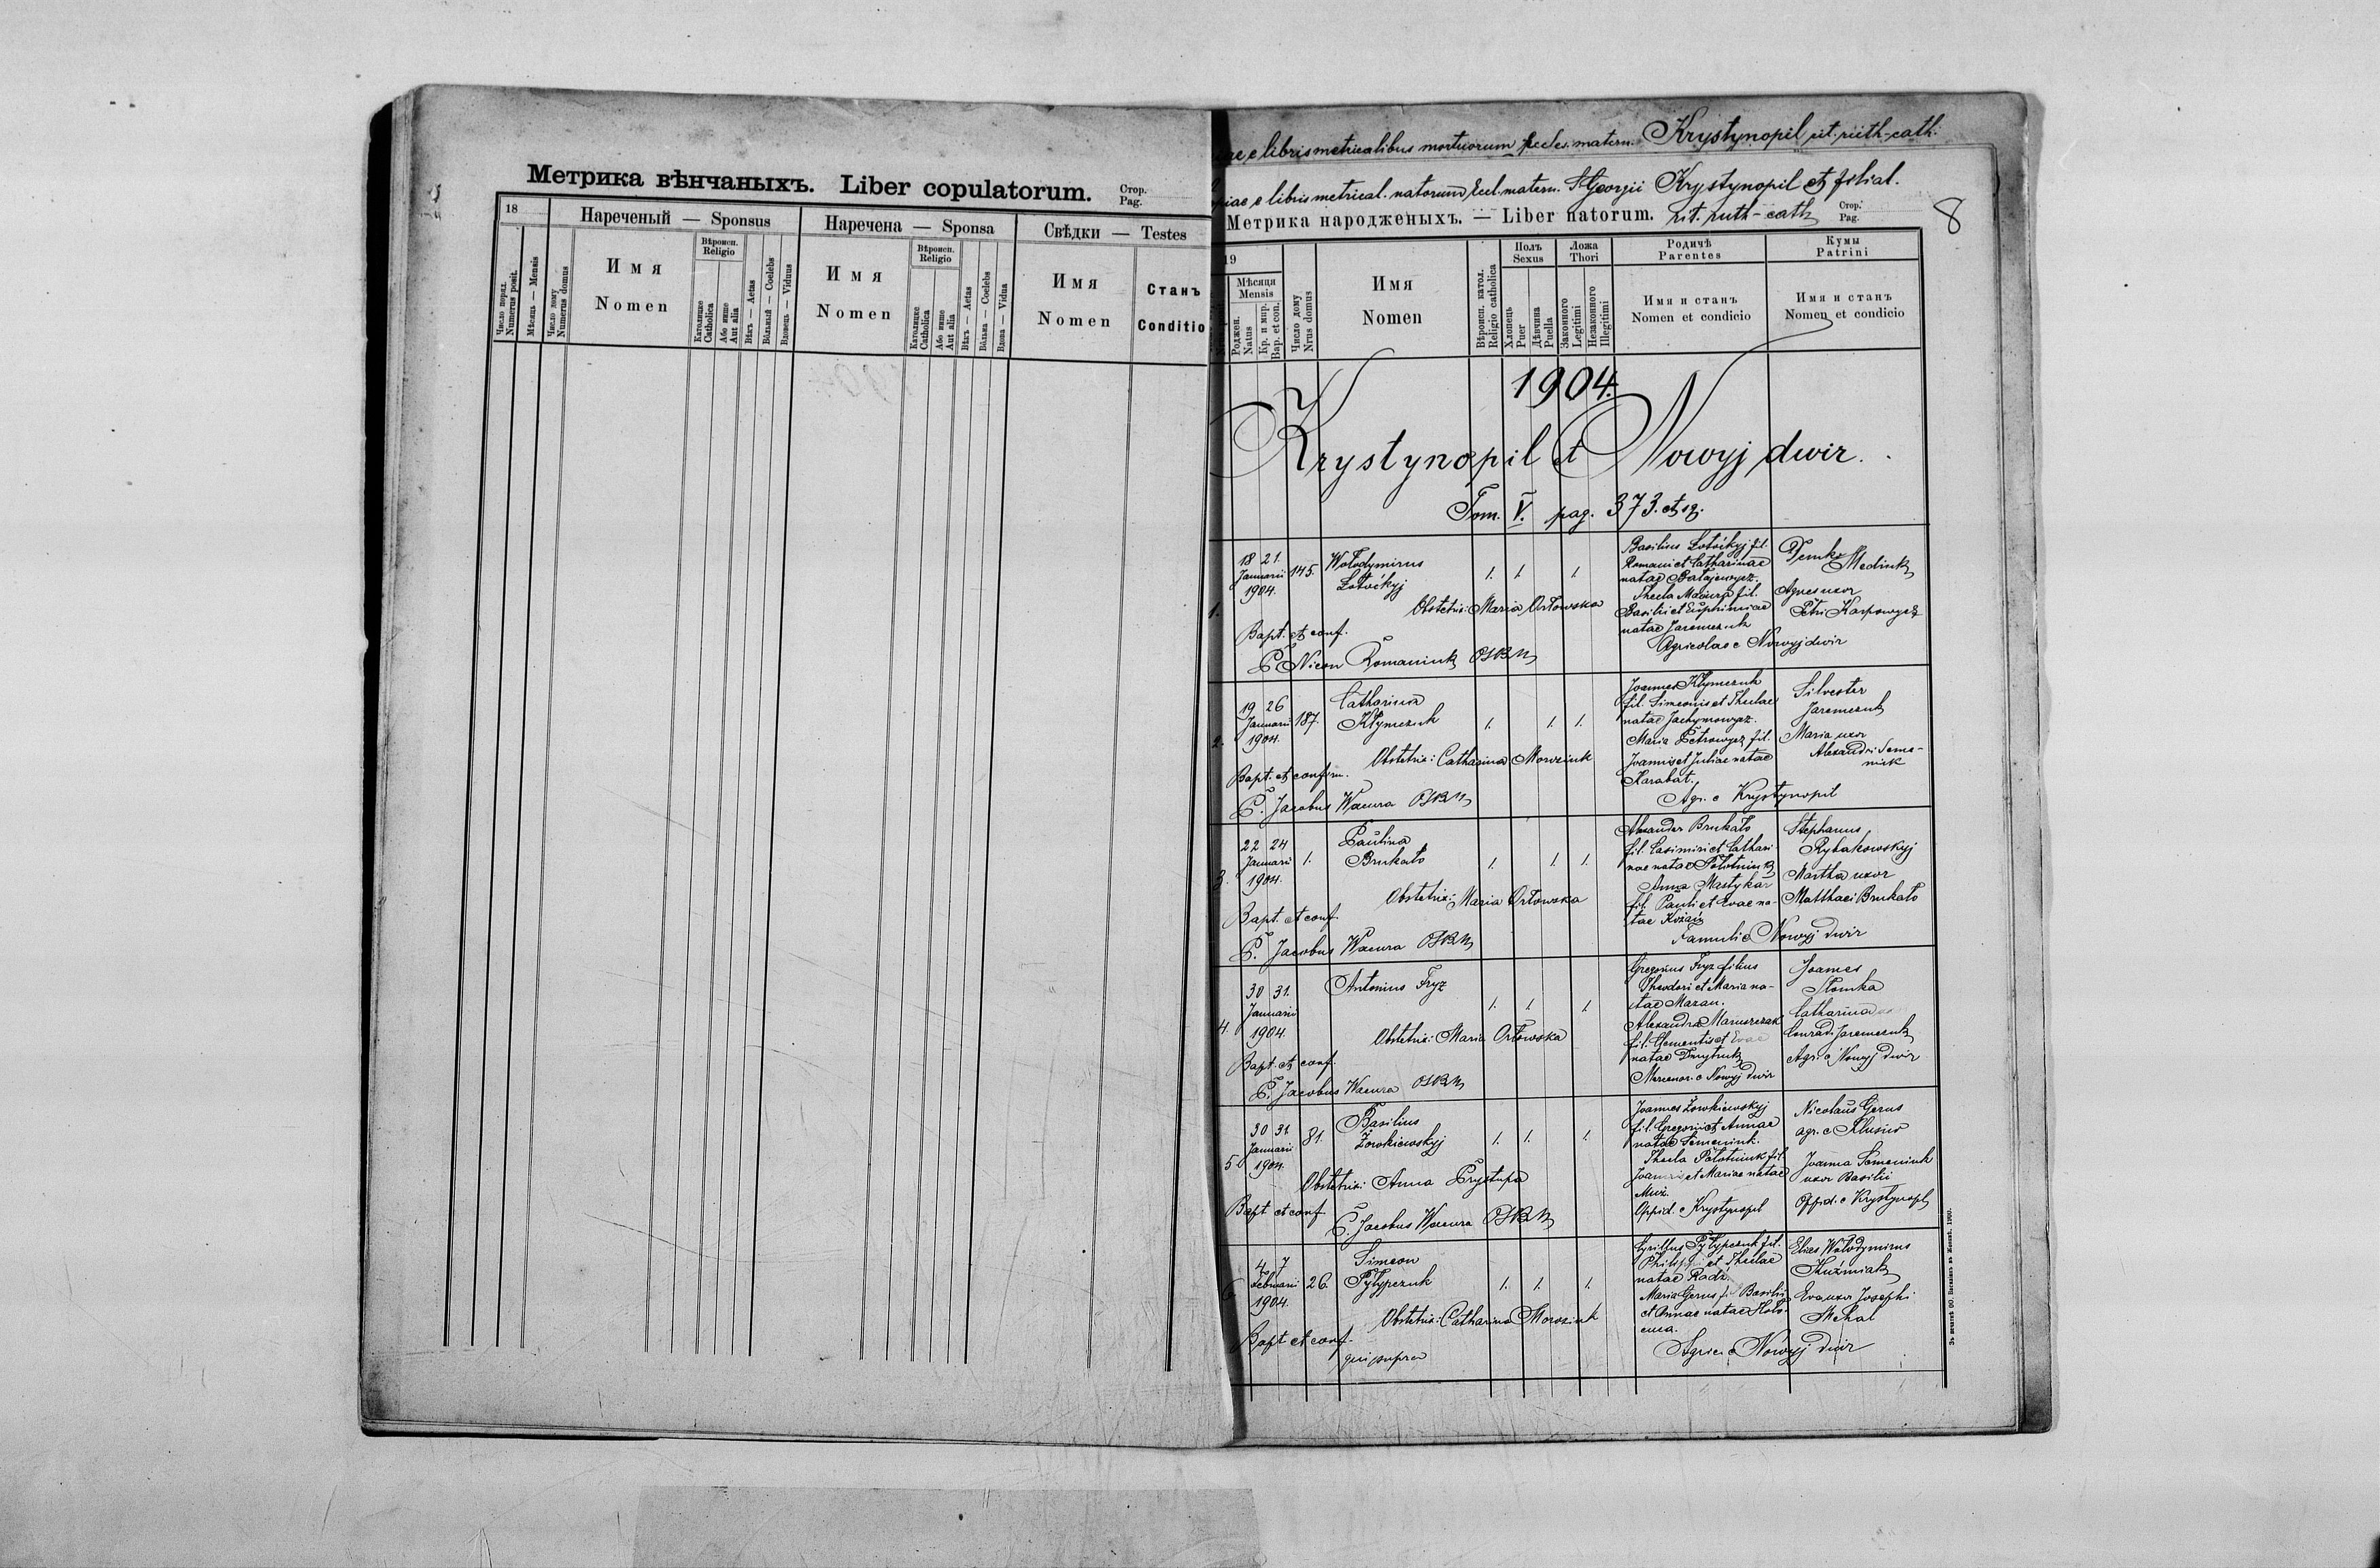 Метрика вѣнчаныхъ. Liber copulatorum.
Стор.
Pag.
18
Нареченый — Sponsus
Наречена — Sponsa
Свѣдки — Testes
Число поряд.
Numerus posit.
Мѣсяць — Mensis
Число дому
Numerus domus
Имя
Nomen
Вѣроисп.
Religio
Католицке
Catholica
Або инше
Aut alia
Вѣкъ — Aetas
Вольный — Coelebs
Вдовець — Viduus
Имя
Nomen
Вѣроисп.
Religio
Католицке
Catholica
Або инше
Aut alia
Вѣкъ — Aetas
Вольна — Coelebs
Вдова — Vidua
Имя
Nomen
Станъ
Conditio
e libris metricalibus mortuorum eccles. matern. Krystynopil rit. ruth-cath.
e libris metrical. natorum Eccl. matern. St Georgii Krystynopil et filial.
Метрика народженыхъ. — Liber natorum. rit. ruth-cath
Стор.
Pag.
8
19
Мѣсяця
Mensis
Роджен.
Natus
Кр. и мир.
Bap. et con.
Число дому
Nrus domus
Имя
Nomen
Вѣроисп. катол.
Religio catholica
Полъ
Sexus
Хлопець
Puer
Дѣвчина
Puella
Ложа
Thori
Законного
Legitimi
Незаконного
Illegitimi
Родичѣ
Parentes
Имя и станъ
Nomen et condicio
Кумы
Patrini
Имя и станъ
Nomen et condicio
1904.
Krystynopil et Nowyj dwir.
Tom. V. pag. 373. et sq.
1.
18 21
Januarii
1904.
145.
Wołodymirus
1. 1. 1.
Obstetrix: Maria Orłowska
Bapt. et conf.
P. Nicon Romaniuk OSBM
Basilius fil.
Romani et Catharinae
natae
Thecla Mazur fil.
Basilii et Euphrimiae
natae Jaremczuk
Agricolae e Nowyj dwir
Demko
Mediuk
Agnes uxor
Petri Karpowycz
2.
19 26
Januarii
1904.
187.
Catharina
Kłymczuk
1. 1. 1.
Obstetrix: Catharina Morozink
Bapt. et confirm.
P. Jacobus Wacura OSBM
Joannes Kłymczuk
fil. Simeonis et Theclae
natae Jachymowycz.
Maria Petrowycz fil.
Joannis et Juliae natae
Karabat.
Agr. e Krystynopil
Silvester
Jaremczuk
Maria uxor
Alexandri Seme-
niuk
3.
22 24
Januarii
1904.
1.
Paulina
Brukało
1. 1. 1.
Obstetrix: Maria Orłowska
Bapt. et conf.
P. Jacobus Wacura OSBM
Alexander Brukało
fil. Casimiri et Cathari-
nae natae
Anna Mastykar
fil. Pauli et Evae na-
tae
Famuli e Nowyj dwir
Stephanus
Rybakowskyj
Martha uxor
Matthaei Brukało
4.
30 31.
Januarii
1904.
Antonius Fryz
1. 1. 1.
Obstetrix: Maria Orłowska
Bapt. et conf.
P. Jacobus Wacura OSBM
Gregorius Fryz filius
Theodori et Maria na-
tae Mazan.
Alexandra Maruszczak
fil. Clementis et Evae
natae Dmytruk
Mercenar. e Nowyj dwir
Joannes
Słomka
Catharina
Conradi Jaremczuk
Agr. e Nowyj dwir
5
30 31.
Januarii
1904.
81.
Basilius
Żowkiewskyj
1. 1. 1.
Obstetrix: Anna Prystupa
Bapt et conf
P. Jacobus Wacura OSBM
Joannes Żowkiewskyj
fil. Gregorii et Annae
natae Semeniuk.
Thecla fil.
Joannis et Mariae natae
Muż.
Oppid. e Krystynopil
Nicolaus Gerus
agr. e Klusiw
Joanna Semeniuk
uxor Basilii
Oppid. e Krystynopil
6
4 7
Februarii
1904.
26
Simeon
Pyłypczuk
1. 1. 1.
Obstetrix: Catharina Morozink
Bapt et conf.
qui supra
Cyrillus Pyłypczuk fil.
Philippi et Theclae
natae
Maria Gerus f. Basilii
et Annae natae
Agric. e Nowyj dwir
Elias Wołodymirus
Kuźmiak
Eva uxor Josephi
Mehal